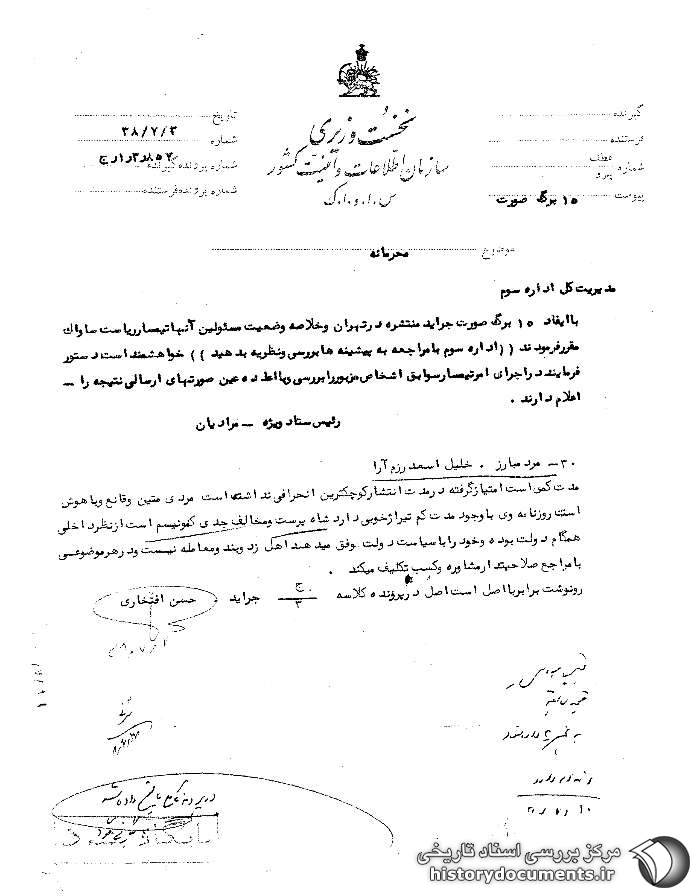 نخست وزیری
سازمان اطلاعات و امنیت کشور
س.ا.و.ا.ک
گیرنده
فرستنده
شماره عطف پیرو
پیوست ۱۵ برگ صورت
تاریخ
شماره ۳۸/۷/۲
شماره پرونده گیرنده
شماره پرونده فرستنده
موضوع محرمانه
مدیریت کل اداره سوم
با ایفاد ۱۵ برگ صورت جراید منتشره در تهران و خلاصه وضعیت مسئولین آنها تیمسار ریاست ساواک
مقرر فرمودند ((اداره سوم با مراجعه به پیشینه ها بررسی و نظریه بدهید)) خواهشمند است دستور
فرمایند در اجرای امر تیمسار سوابق اشخاص مزبور را بررسی و با اعاده عین صورتهای ارسالی نتیجه را –
اعلام دارند .
رئیس ستاد ویژه – مرادیان
۳۰– مرد مبارز . خلیل اسعد رزم آرا
مدت کمی است امتیاز گرفته در مدت انتشار کوچکترین انحرافی نداشته است مردی متین وقانع وباهوش
است روزنامه وی با وجود مدت کم تیراژ خوبی دارد شاه پرست ومخالف جدی کمونیسم است از نظر داخلی
همگام دولت بوده وخود را با سیاست دولت وفق میدهد اهل زد وبند ومعامله نیست ودر هر موضوعی
با مراجع صلاحیتدار مشاوره وکسب تکلیف میکند .
رونوشت برابر با اصل است اصل در پرونده کلاسه ج ۳ جراید . حسن افتخاری
مرکز بررسی اسناد تاریخی
historydocuments.ir